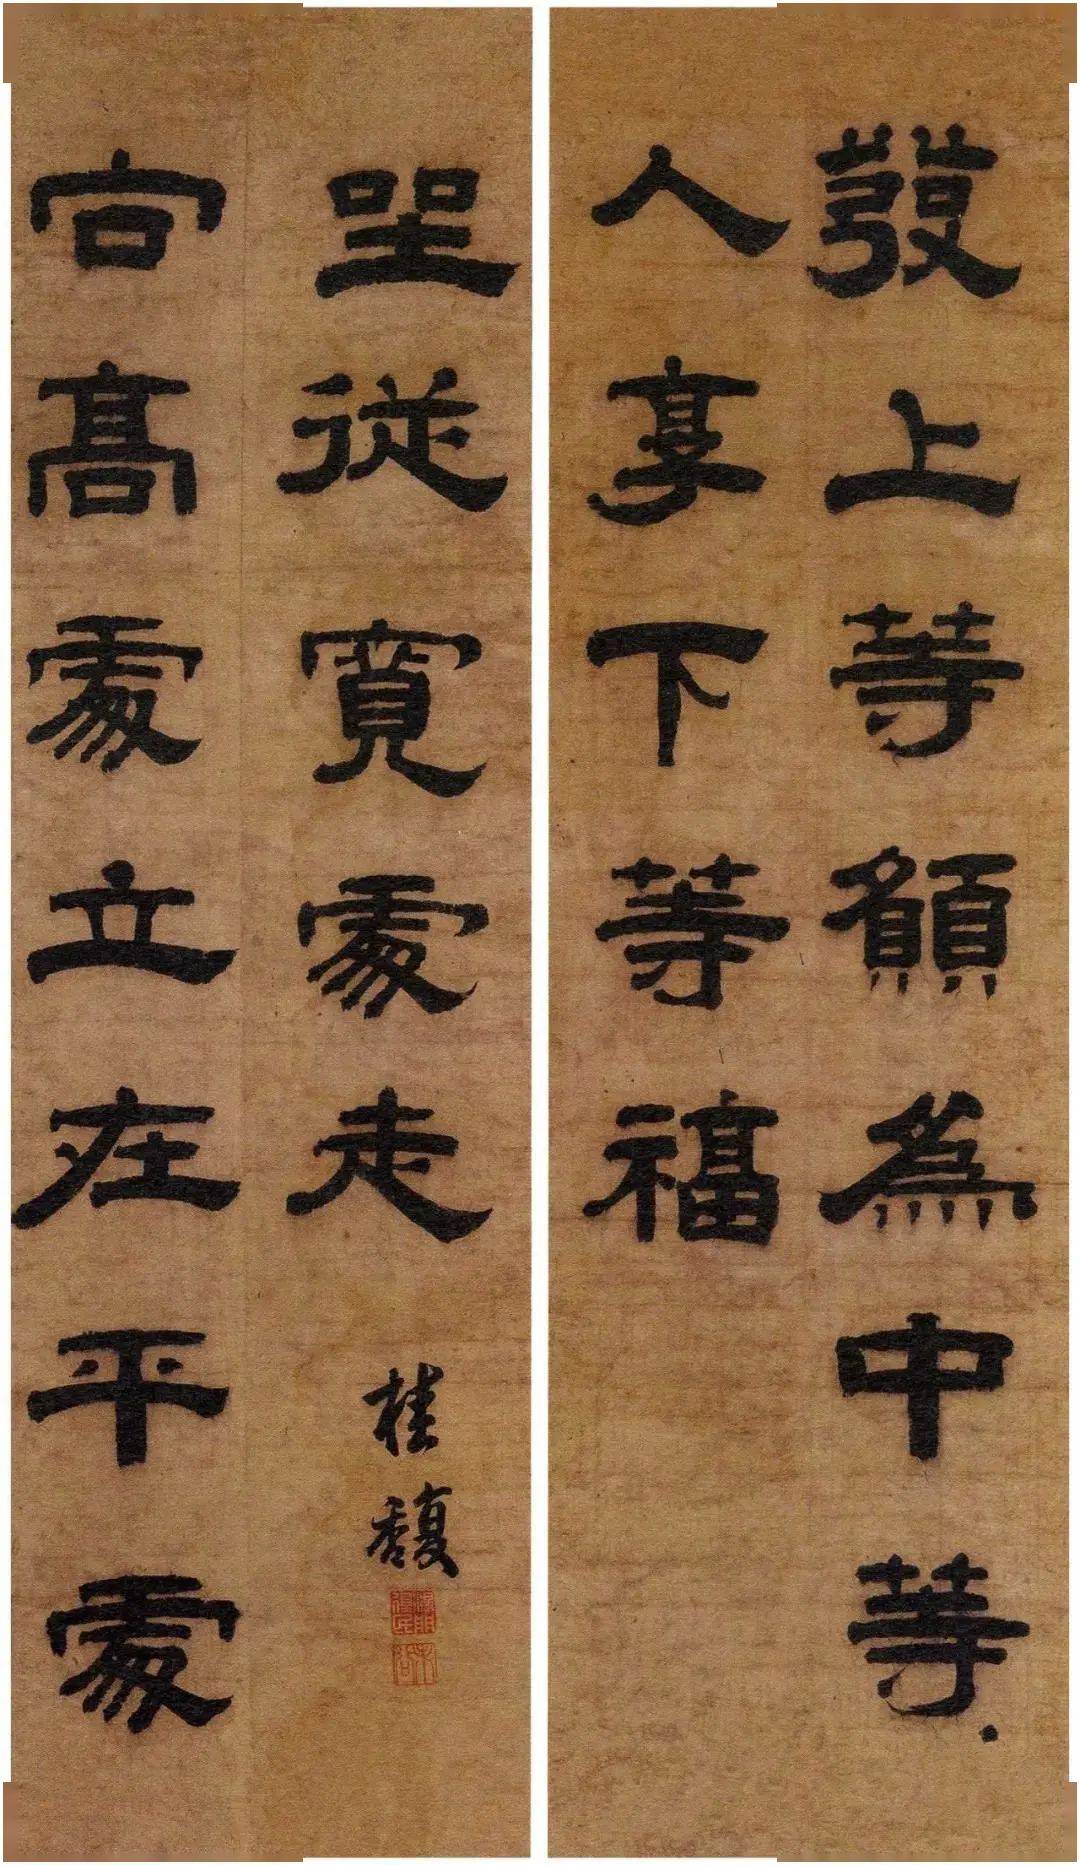 發上等願為中等
人享下等福
向高處立在平處
坐從寬處走
桂馥